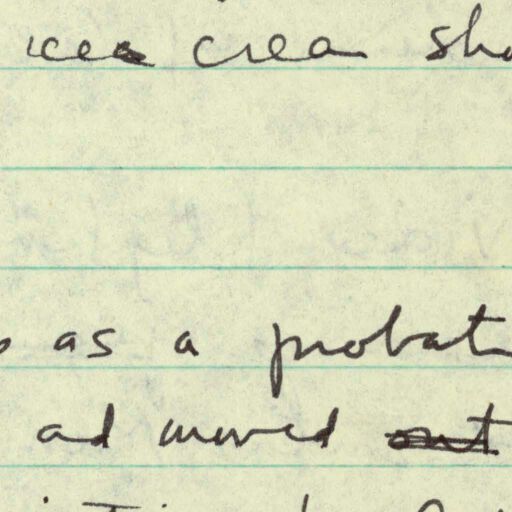 ice crea sho
as a probat
ad moved out